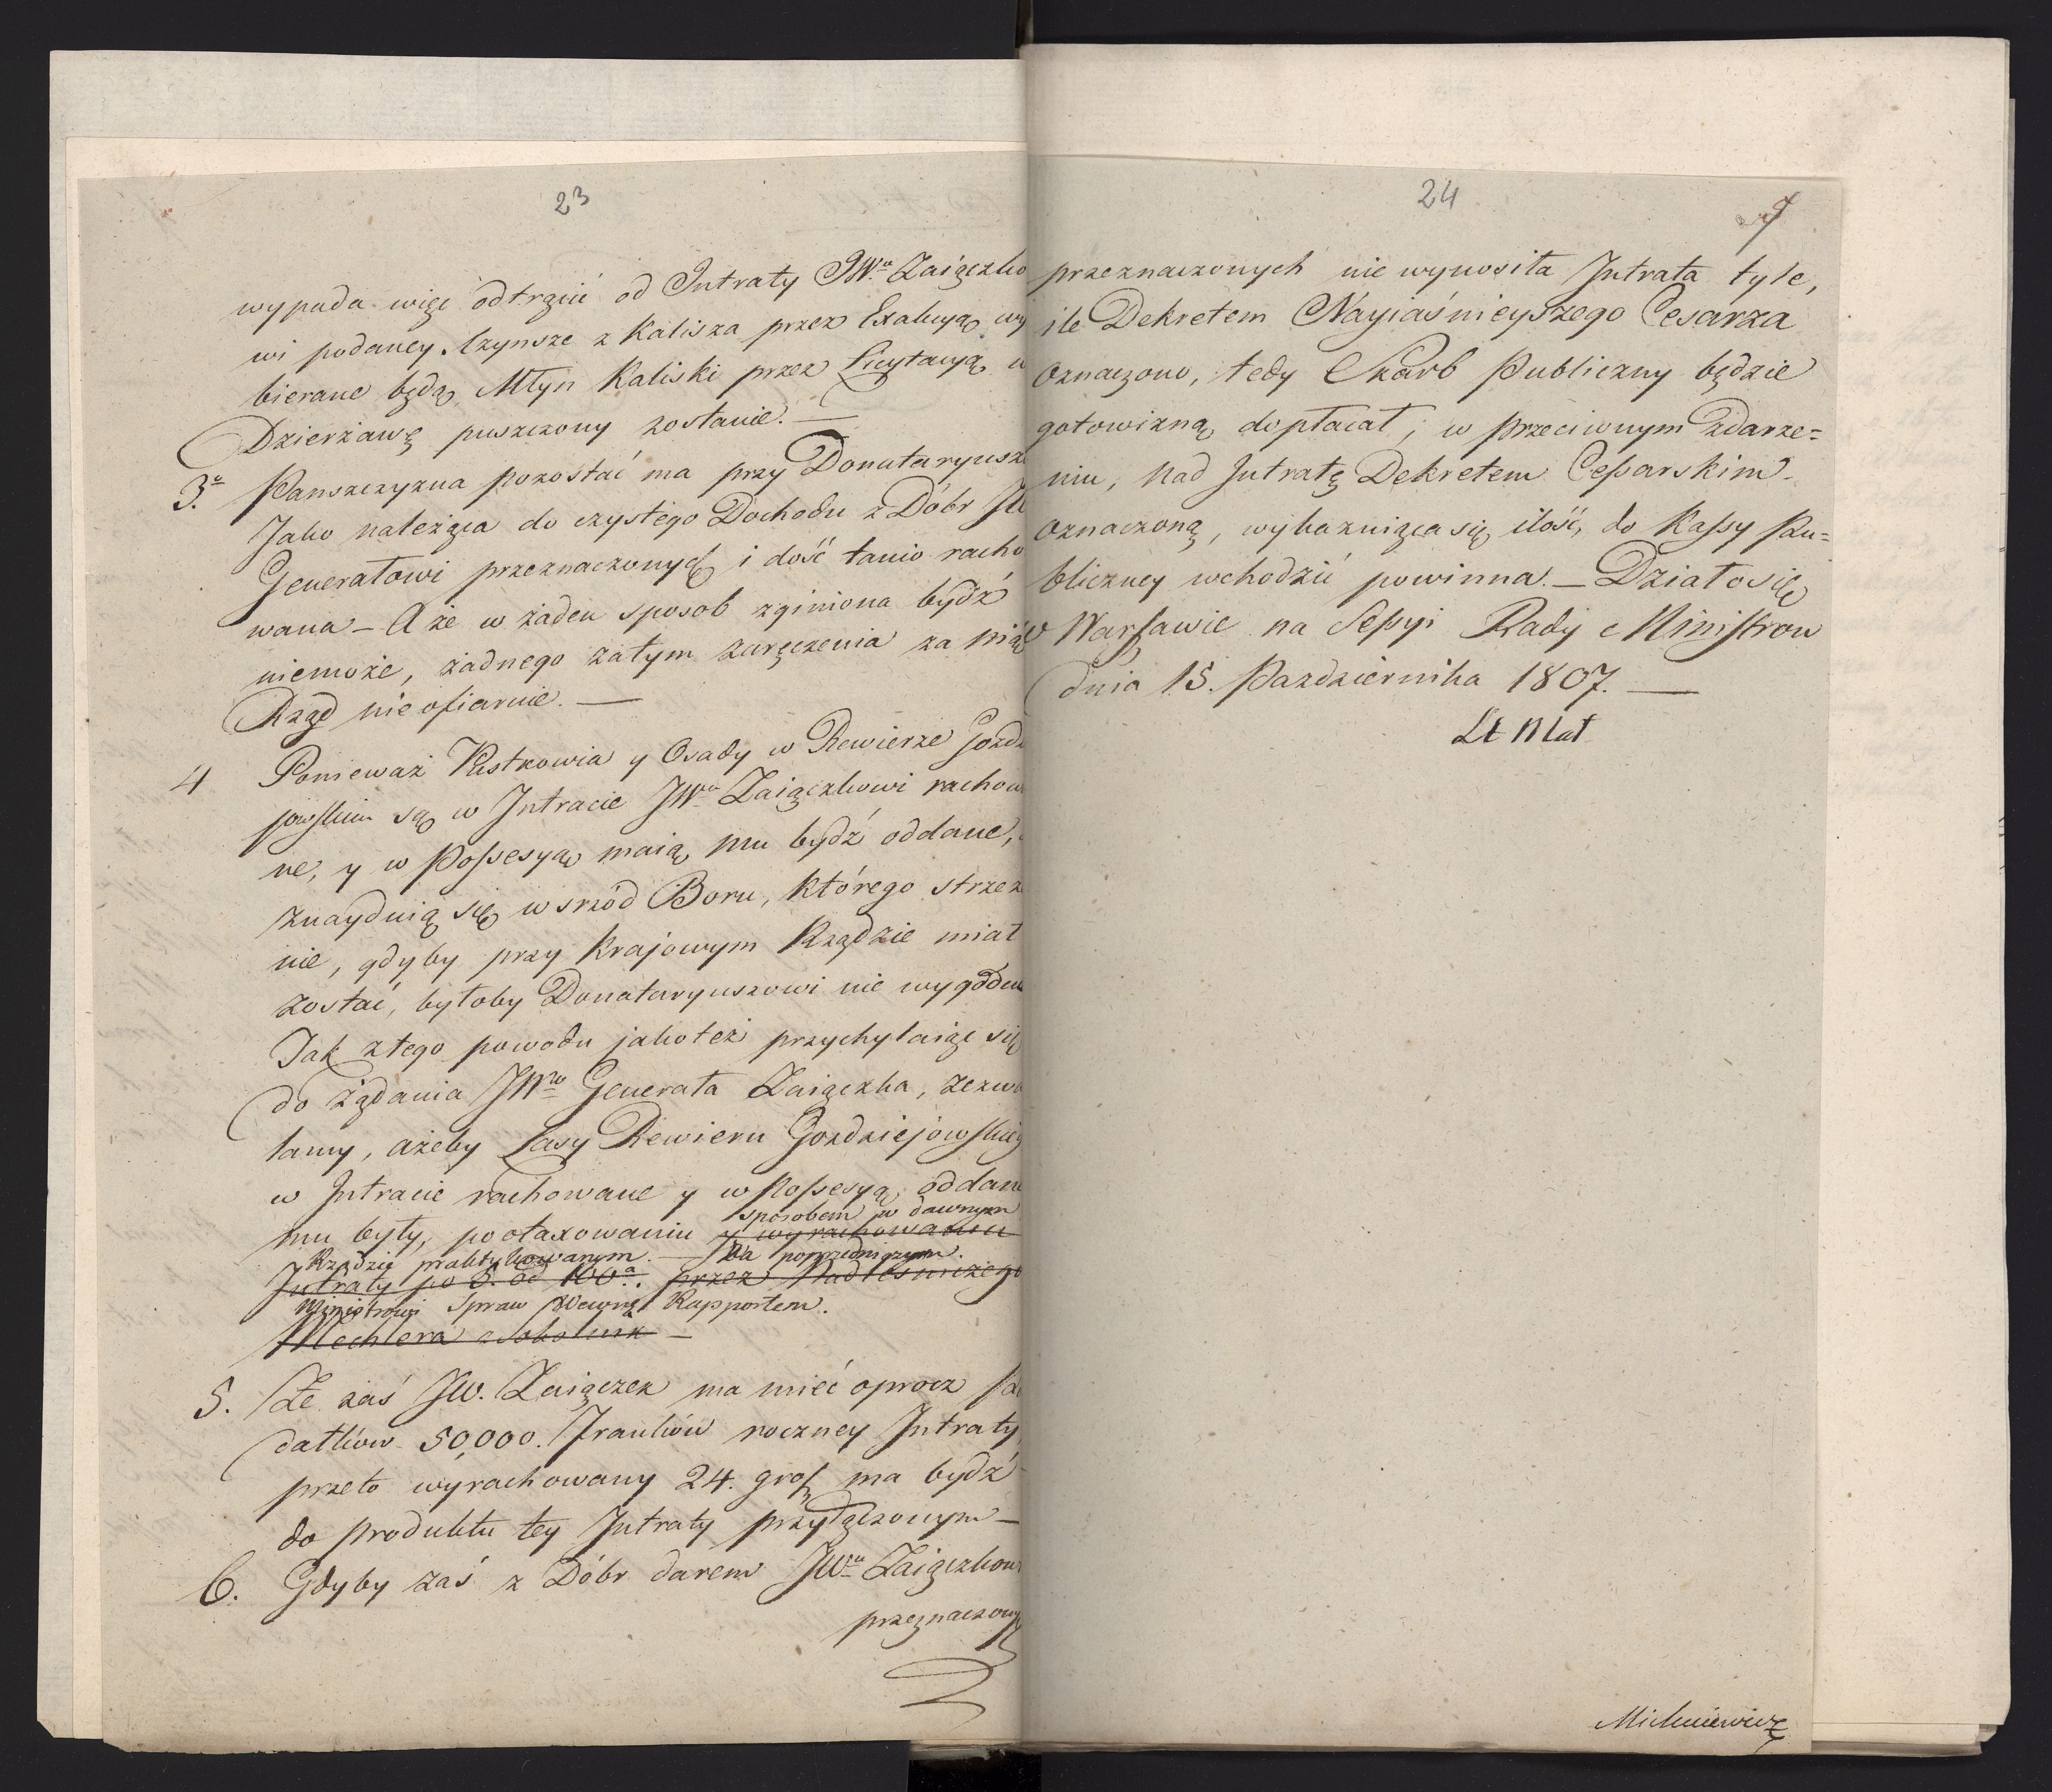 23
wypada więc odtrącić od Intraty JWu Zaiączko
wi podaney. Czynsze z Kalisza przez Exakcyą wy
bierane będą, Młyn Kaliski przez Licytacyą w
Dzierżawę puszczony zostanie. —
3o Panszczyzna pozostać ma przy Donataryusz
Jako należąca do czystego Dochodu z Dóbr JW
Generałowi przeznaczonych i dość tanio racho
wana — A że w żaden sposob zginiona bydź
niemoże, żadnego zatym zaręczenia za nią
Rząd nieofiaruie. —
4 Ponieważ Pustkowia y Osady w Rewierze Gozdz
jowskim są w Intracie JWu Zaiączkowi rachowa
ne, y w Possesyą maią mu bydź oddane,
znayduią się wsrzód Boru, którego strzeże
nie, gdyby przy Krajowym Rządzie miał
zostać, byłoby Donataryuszowi nie wygodne
Jak ztego powodu jakoteż przychylaiąc się
do żądania JWo Generała Zaiączka, zezwa
lamy, ażeby Lasy Rewieru Gozdziejowskieg
w Intracie rachowane y w Possesyą oddane
sposobem w dawnym
mu były, po otaxowaniu y wyrachowaniu
Rządzie praktykowanym. — Za poprzedniczym
Intraty po 5. od 100a. przez Nadleśniczego
Ministrowi Spraw Wewnę. Rapportem.
Mechlera
5. Że zaś JW. Zaiączek ma mieć oprocz Po
datków 50,000. Franków roczney Intraty
przeto wyrachowany 24. grosz ma bydź
do produktu tey Intraty przyłączonym —
6. Gdyby zaś z Dóbr darem JWu Zaiączkowi
przeznaczony
24
9
przeznaczonych nie wynosiła Intrata tyle,
ile Dekretem Nayiaśnieyszego Cesarza
oznaczono, tedy Skarb Publiczny będzie
gotowizną dopłacał; w przeciwnym Zdarze=
niu, nad Intratę Dekretem Cessarskim
oznaczoną, wykazuiąca się ilość, do Kassy Pu=
bliczney wchodzić powinna. — Działo się
w Warszawie na Sessyi Rady Ministrow
dnia 15. Pazdziernika 1807. —
Michniewicz